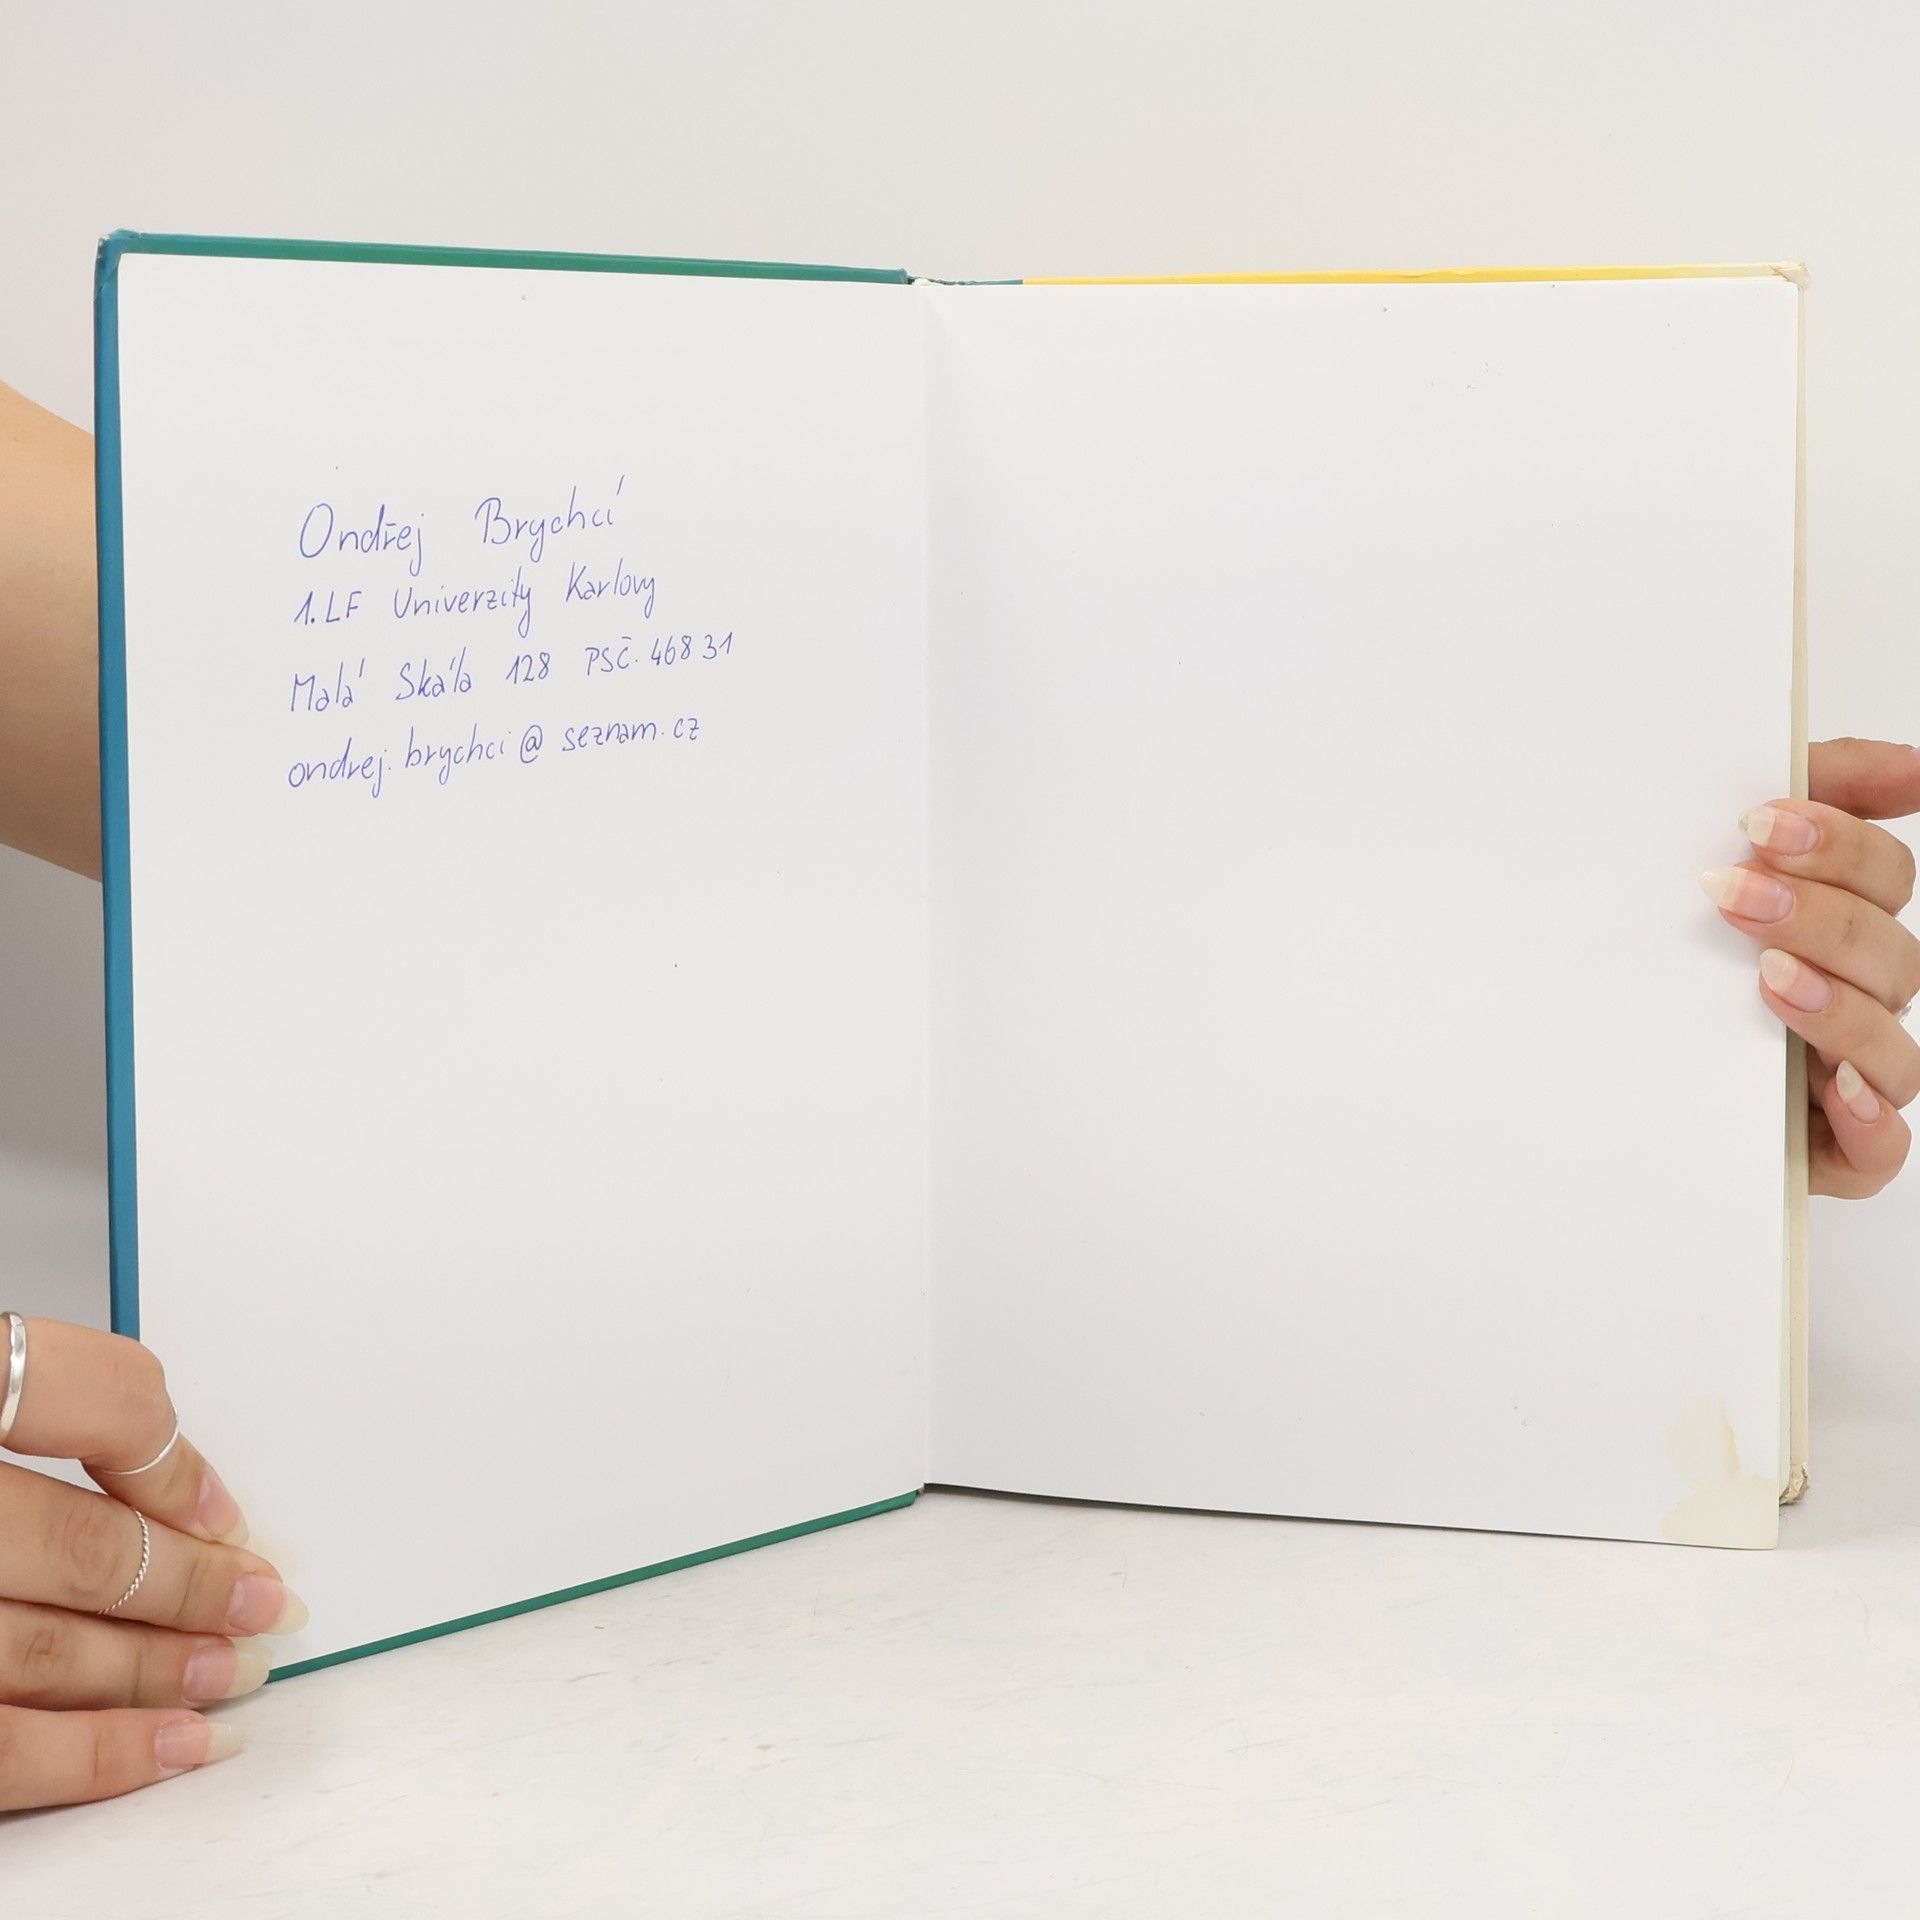 Ondřej Brychcí
1.LF Univerzity Karlovy
Malá Skála 128 PSČ. 468 31
ondrej.brychci@seznam.cz